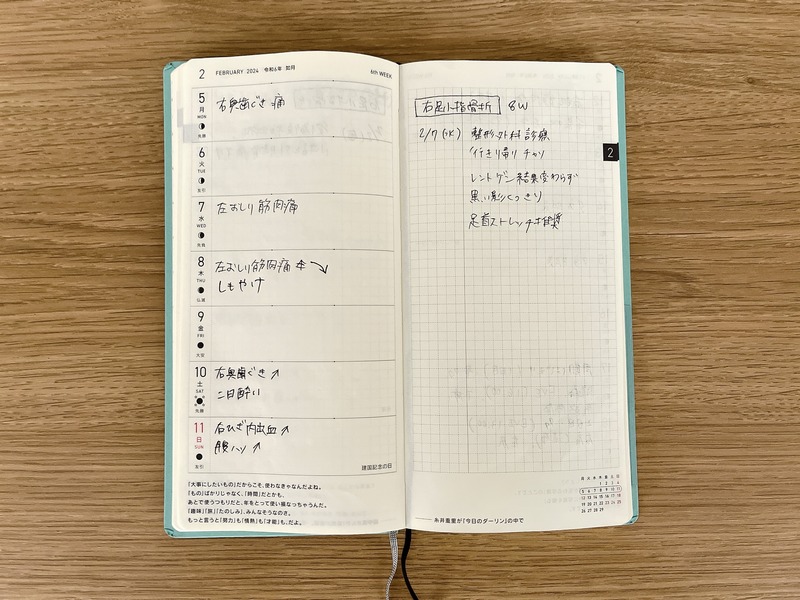 2 FEBRUARY 2024 令和6年 如月
6th WEEK
5 月 MON 先勝
右奥歯ぐき 痛
6 火 TUE 友引
7 水 WED 先負
左おしり筋肉痛
8 木 THU 仏滅
左おしり筋肉痛
しもやけ
9 金 FRI 大安
10 土 SAT 先勝
右奥歯ぐき↗
二日酔い
11 日 SUN 友引
右ひざ内出血↗
腹ハリ↗
建国記念の日
「大事にしたいもの」だからこそ、使わなきゃなんだよね。
「もの」ばかりじゃなく、「時間」だとかも、
あとで使うつもりだと、年をとって使い損なっちゃうんだ。
「趣味」「旅」「たのしみ」、みんなそうなのさ。
もっと言うと「努力」も「情熱」も「才能」も、だよ。
右足小指骨折 8W
2/7(水) 整形外科 診療
行き帰り チャリ
レントゲン結果変わらず
黒い影くっきり
足首ストレッチ推奨
2
日 月 火 水 木 金 土 日
1 2 3 4
5 6 7 8 9 10 11
12 13 14 15 16 17 18
19 20 21 22 23 24 25
26 27 28 29
糸井重里が「今日のダーリン」の中で